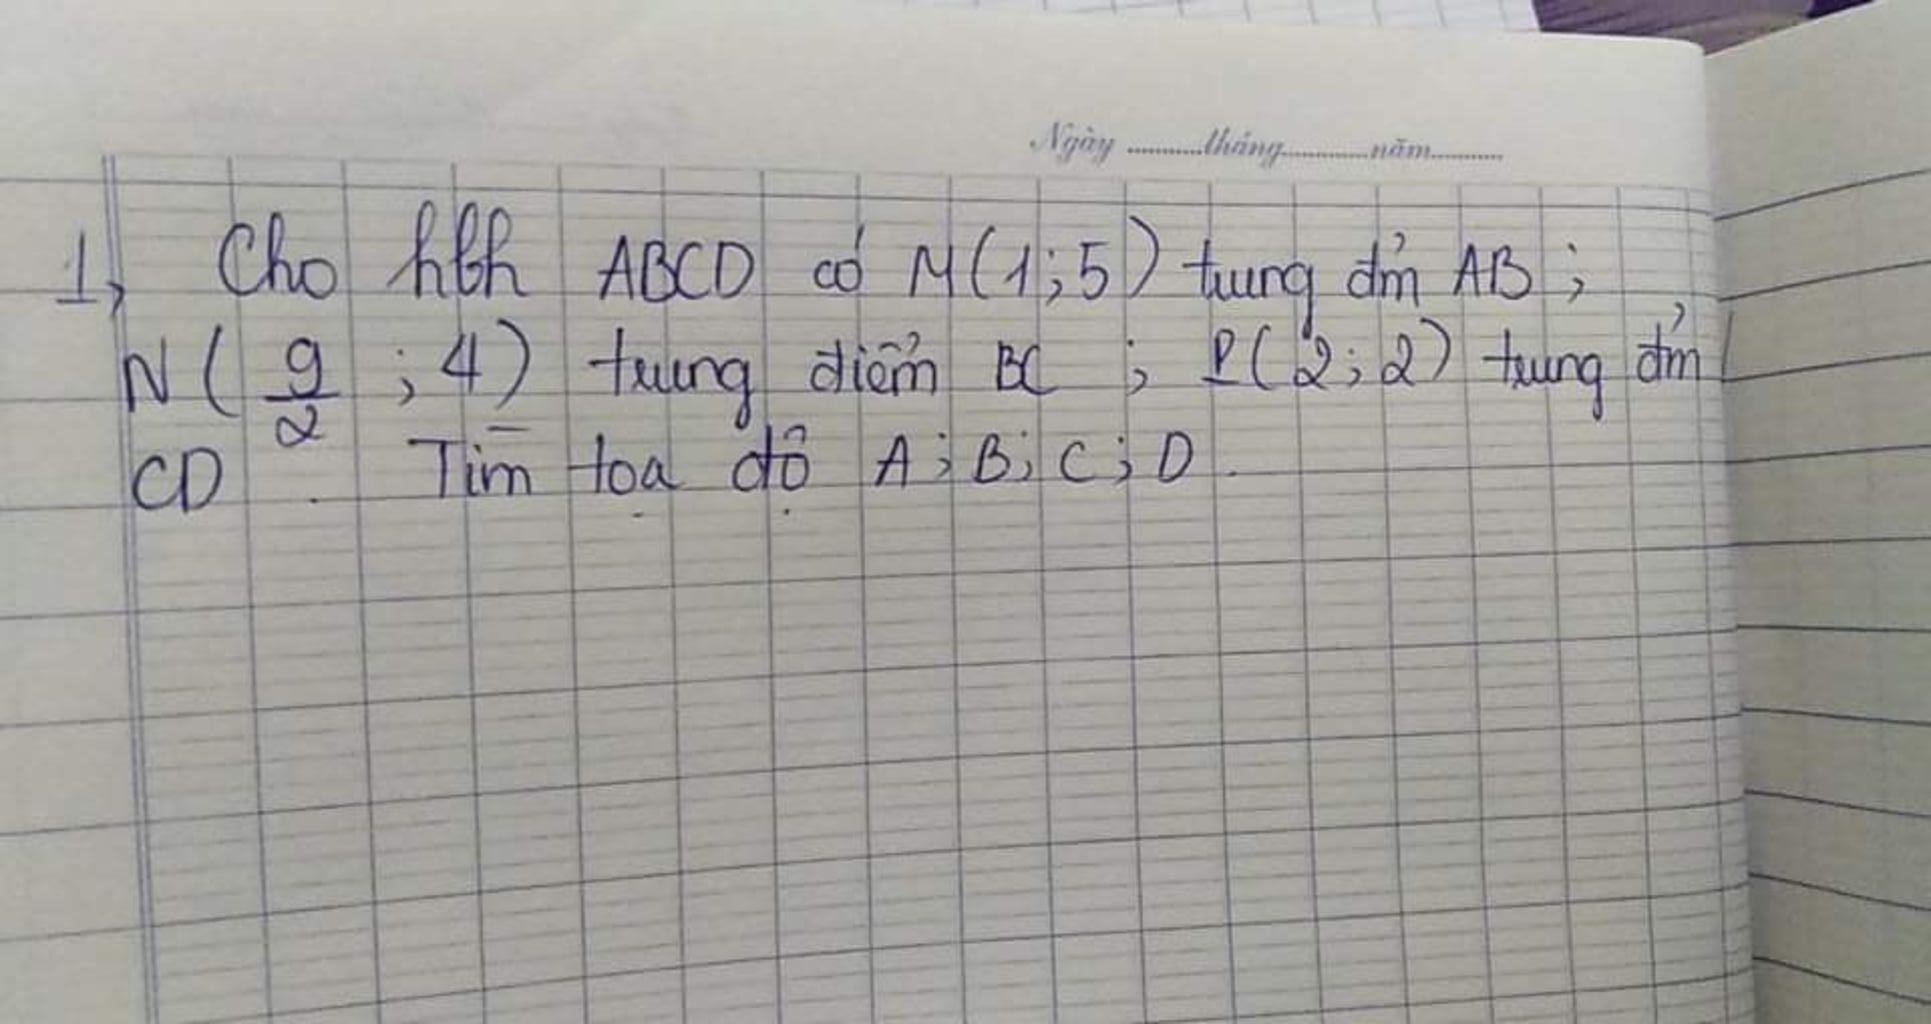 Ngày ........tháng........năm........
1, Cho hbh ABCD có M(1;5) trung đ'm AB ;
N( 9/2 ; 4) trung điểm BC ; P(2;2) trung đ'm
CD . Tìm tọa độ A; B; C; D .